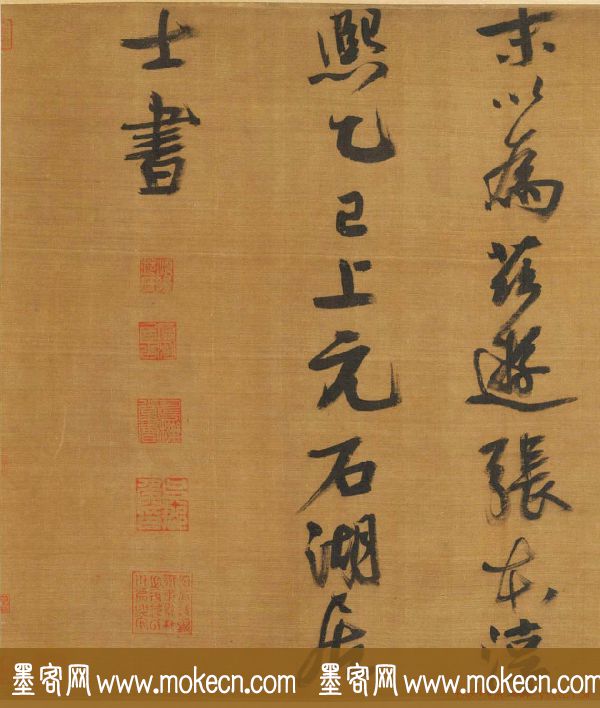 末以為茲遊張本淳
熙乙巳上元石湖居
士書
墨客网 www.mokecn.com 墨客网 www.mokecn.com